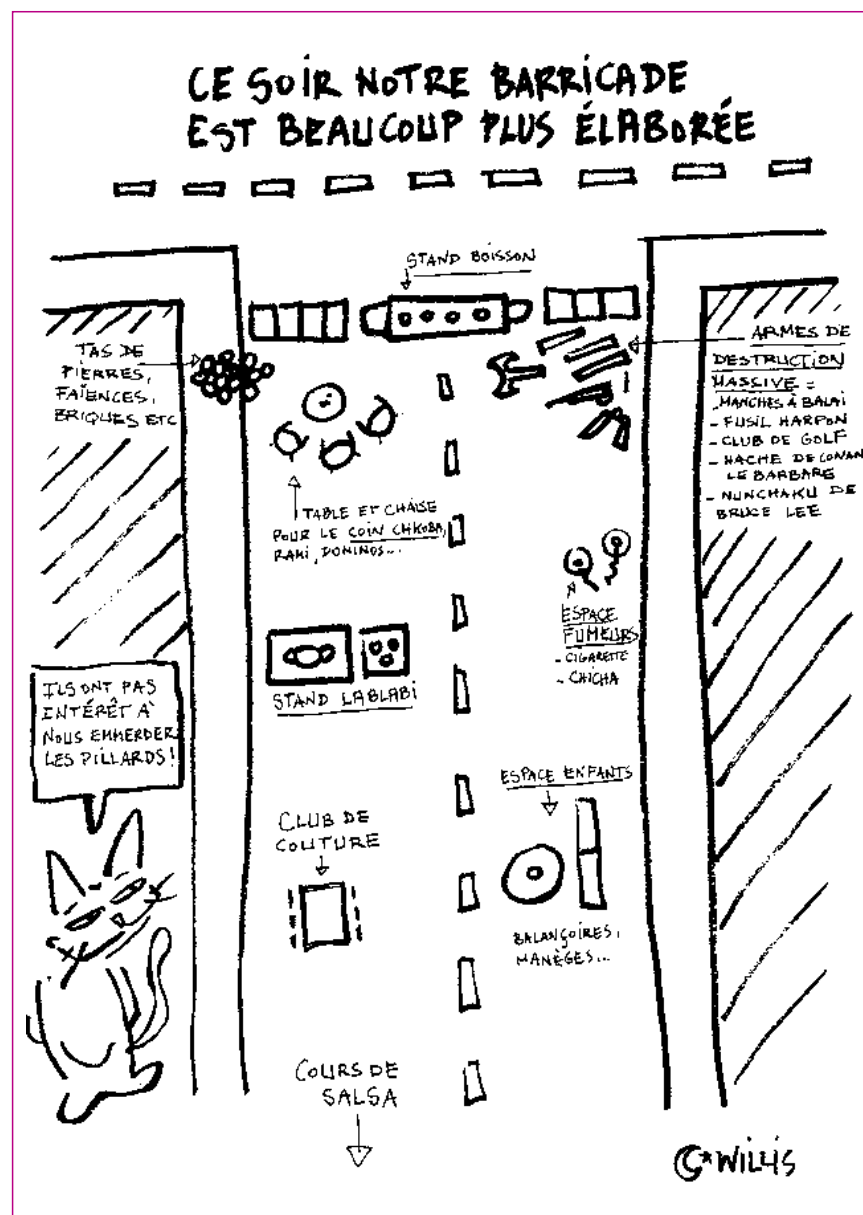 CE SOIR NOTRE BARRICADE
EST BEAUCOUP PLUS ÉLABORÉE
STAND BOISSON
TAS DE
PIERRES,
FAÏENCES,
BRIQUES ETC
ARMES DE
DESTRUCTION
MASSIVE :
- MANCHES À BALAI
- FUSIL HARPON
- CLUB DE GOLF
- HACHE DE CONAN
LE BARBARE
- NUNCHAKU DE
BRUCE LEE
TABLE ET CHAISE
POUR LE COIN CHKOBA,
RAMI, DOMINOS...
ESPACE
FUMEURS
- CIGARETTE
- CHICHA
STAND LABLABI
ILS ONT PAS
INTÉRÊT À
NOUS EMMERDER
LES PILLARDS !
ESPACE ENFANTS
BALANÇOIRES,
MANÈGES...
CLUB DE
COUTURE
COURS DE
SALSA
WILLIS